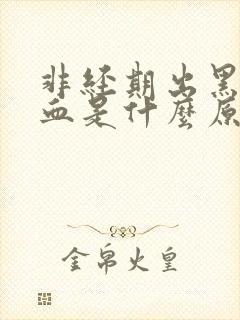 非经期出黑
血是什麼原
金帛火皇